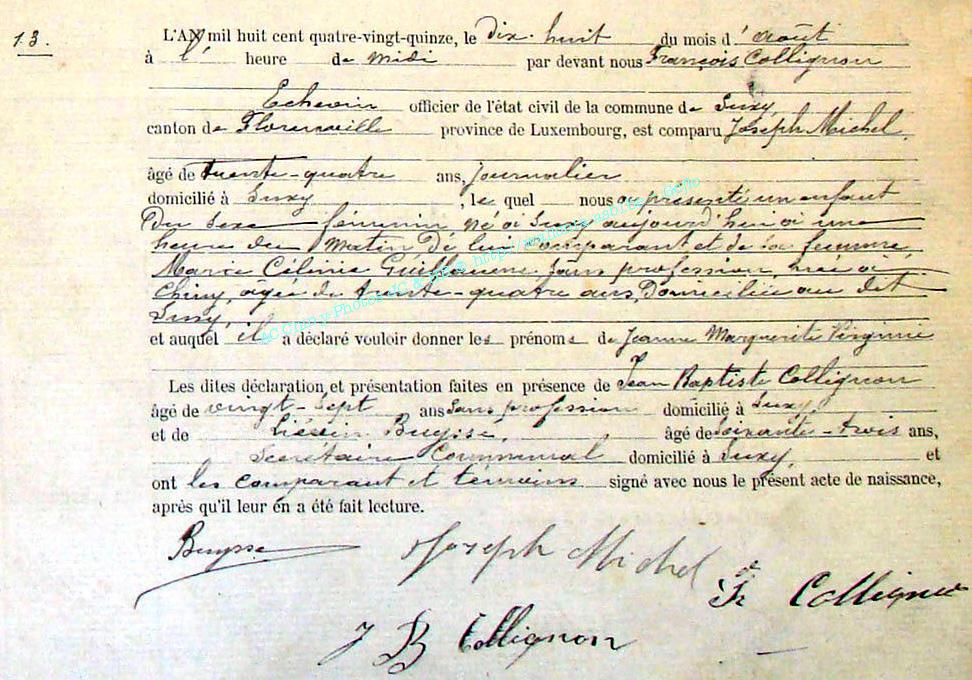 13.
L'AN mil huit cent quatre-vingt-quinze, le dix-huit du mois d'août
à l' heure de midi par devant nous François Collignon
Echevin officier de l'état civil de la commune de Suxy,
canton de Florenville province de Luxembourg, est comparu Joseph Michel,
âgé de trente-quatre ans, journalier
domicilié à Suxy, le quel nous a présenté un enfant
du sexe féminin né à Suxy aujourd'hui à une
heure du matin de lui comparant et de sa femme
Marie Célinie Guillaume sans profession, née à
Chiny, âgée de trente-quatre ans, domiciliée au dit
Suxy,
et auquel il a déclaré vouloir donner les prénoms de Jeanne Marguerite Virginie
Les dites déclaration et présentation faites en présence de Jean Baptiste Collignon
âgé de vingt-sept ans sans profession domicilié à Suxy
et de Liévin Buysse, âgé de soixante-trois ans,
Secrétaire Communal domicilié à Suxy, et
ont les comparant et témoins signé avec nous le présent acte de naissance,
après qu'il leur en a été fait lecture.
Buysse Joseph Michel Fr Collignon
J B Collignon